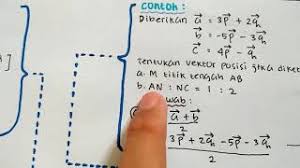 ]
Contoh :
Diberikan a⃗ = 3p⃗ + 2q⃗
b⃗ = -5p⃗ - 3q⃗
c⃗ = 4p⃗ - q⃗
Tentukan vektor posisi jika diket
a. M titik tengah AB
b. AN : NC = 1 : 2
wab :
a⃗ + b⃗
2
3p⃗ + 2q⃗ - 5p⃗ - 3q⃗
2